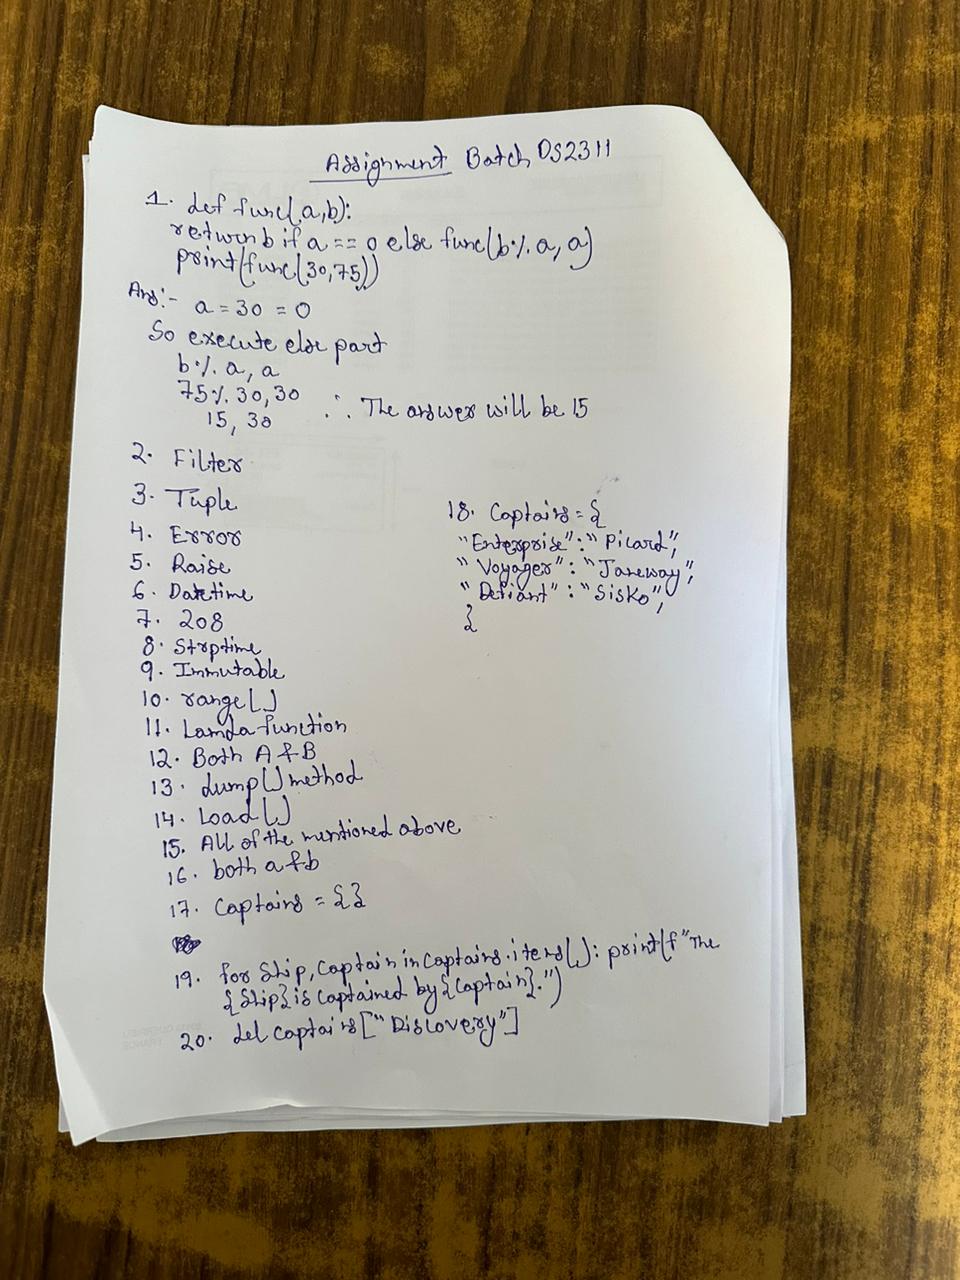 Assignment Batch DS2311
1. def func(a,b):
return b if a == 0 else func(b%a, a)
print(func(30,75))
Ans:- a = 30 = 0
So execute else part
b%a, a
75%30,30
15, 30 ∴ The answer will be 15
2. Filter
3. Tuple
4. Error
5. Raise
6. Datetime
7. 208
8. Strptime
9. Immutable
10. range()
11. Lamda function
12. Both A & B
13. dump() method
14. Load()
15. All of the mentioned above
16. both a & b
17. Captains = {}
18. Captains = {
"Enterprise":"Picard",
"Voyager":"Janeway",
"Defiant":"Sisko",
}
19. for Ship, Captain in Captains.items(): print(f"The
{Ship} is captained by {Captain}.")
20. del captains["Discovery"]